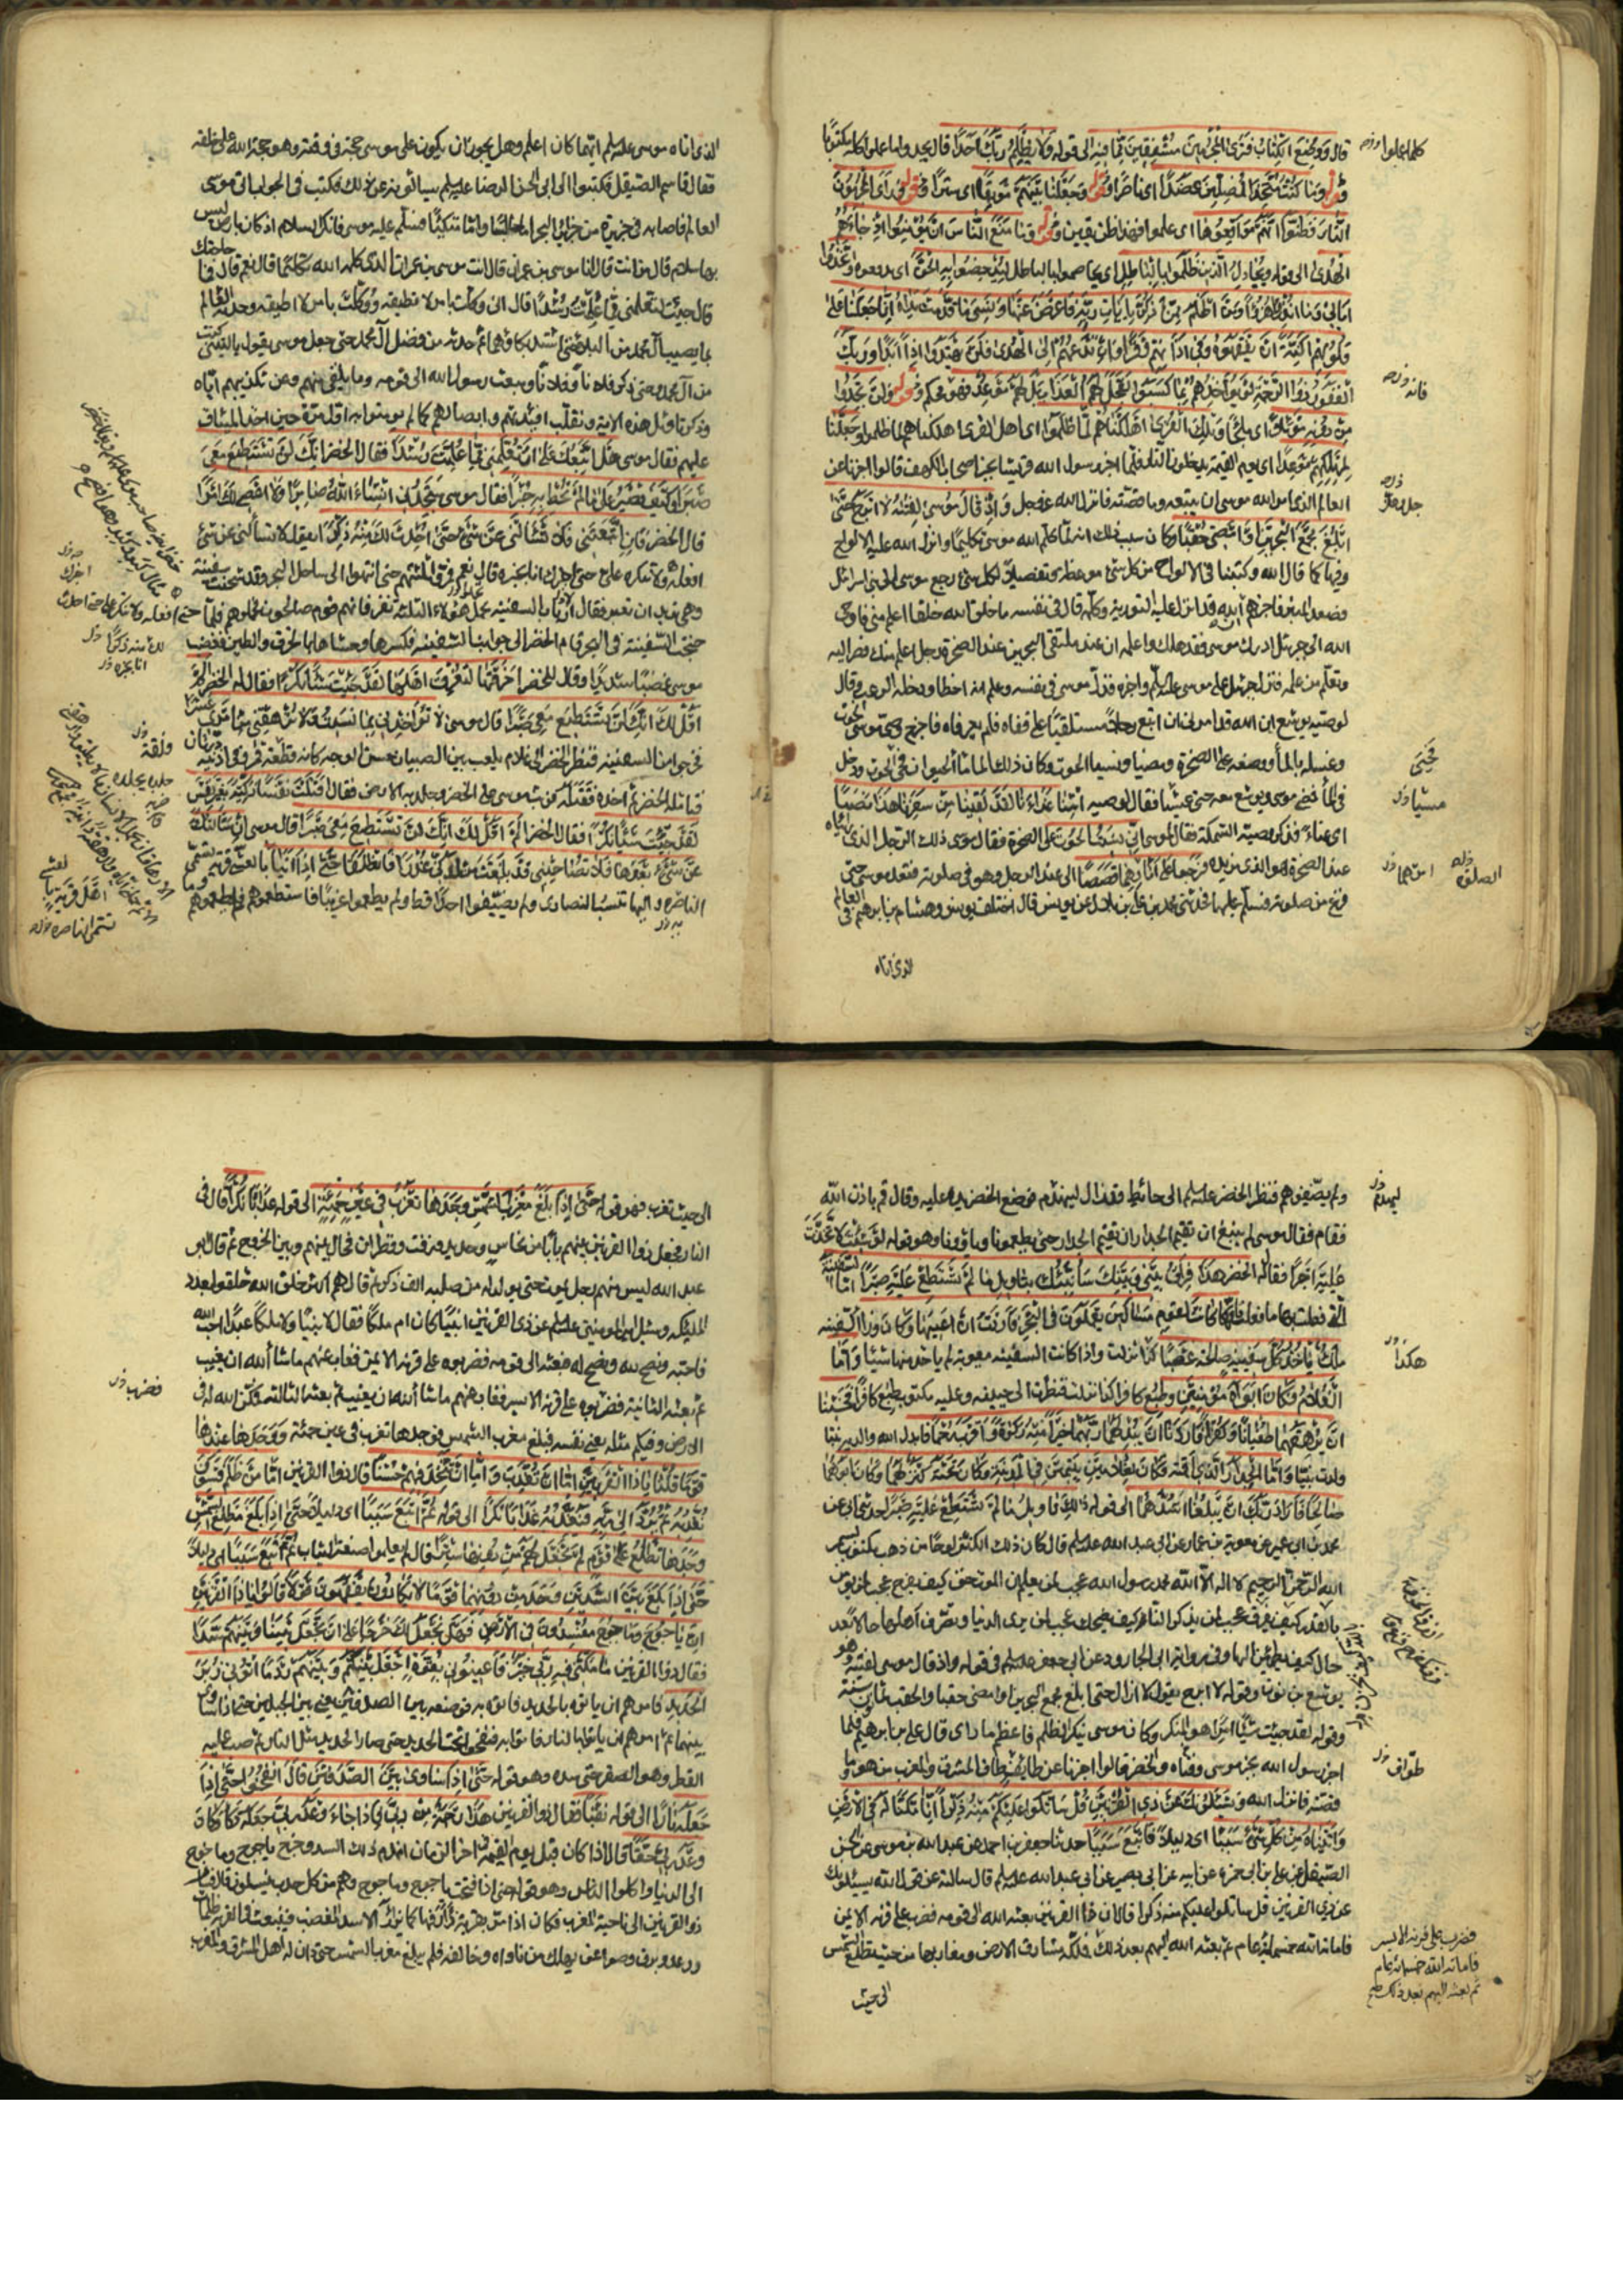 قال ووضع الكتاب فترى المجرمين مشفقين مما فيه الى قوله ولا يظلم ربك احدا قال يجدوا ما عملوا كله مكتوبا
وقوله وما كنت متخذ المضلين عضدا اى ناصرا وقوله وجعلنا بينهم موبقا اى سترا وقوله وراى المجرمون
النار فظنوا انهم مواقعوها اى علموا فهذا ظن يقين وقوله وما منع الناس ان يؤمنوا اذ جاءهم
الهدى الى قوله ويجادل الذين كفروا بالباطل ليدحضوا به الحق اى يدفعوه واتخذوا
اياتى وما انذروا هزوا ومن اظلم ممن ذكر بايات ربه فاعرض عنها ونسى ما قدمت يداه انا جعلنا على
قلوبهم اكنة ان يفقهوه وفى اذانهم وقرا وان تدعهم الى الهدى فلن يهتدوا اذا ابدا وربك
الغفور ذو الرحمة لو يؤاخذهم بما كسبوا لعجل لهم العذاب بل لهم موعد فهو محكم وقوله لن يجدوا
من دونه موئلا اى ملجأ وتلك القرى اهلكناهم لما ظلموا اى اهل القرى اهلكناهم لما ظلموا وجعلنا
لمهلكهم موعدا اى يوم القيمة يدخلون النار فلما اخبر رسول الله قريشا بخبر اصحاب الكهف قالوا اخبرنا عن
العالم الذى امر الله موسى ان يتبعه وما قصته فانزل الله عز وجل واذ قال موسى لفتيه لا ابرح حتى
ابلغ مجمع البحرين او امضى حقبا وكان سبب ذلك انه لما كلم الله موسى تكليما وانزل الله عليه الالواح
وفيها كما قال الله وكتبنا له فى الالواح من كل شئ موعظة وتفصيلا لكل شئ رجع موسى الى بنى اسرائل
فصعد المنبر فاخبرهم ان الله قد انزل عليه التورية وكلمه قال فى نفسه ما خلق الله خلقا اعلم منى فاوحى
الله الى جبرئل ادرك موسى فقد هلك واعلمه ان عند ملتقى البحرين عند الصخرة رجل اعلم منك فصر اليه
وتعلم من علمه فنزل جبرئل على موسى عليه السلم واخبره وذل موسى فى نفسه وعلم انه اخطأ ودخله الرعب وقال
لوصيه يوشع ان الله قد امرنى ان اتبع رجلا عند ملتقى
وغسله بالماء ووضعه على الصخرة ومضيا ونسيا الحوت وكان ذلك الماء ماء الحيوان فحى الحوت ودخل
فى الماء فمضى موسى ويوشع معه حتى عشيا فقال لوصيه اتنا غداءنا لقد لقينا من سفرنا هذا نصبا
اى عناء فذكر وصيه السمكة فقال لموسى انى نسيت الحوت على الصخرة فقال موسى ذلك الرجل الذى
عند الصخرة هو الذى نريده فرجعا على اثارهما قصصا الى عند الرجل وهو فى صلوته فقعد موسى حتى
فرغ من صلوته فسلم عليهما فحدثنى محمد بن على بن بلال عن يونس قال اختلف يونس وهشام بن ابرهيم فى العالم
الذى اتاه
الذى اتاه موسى عليه السلم ايهما كان اعلم وهل يجوز ان يكون على موسى حجة فى وقته وهو حجة الله على خلقه
فقال قاسم الصيقل فكتبوا الى ابى الحسن الرضا عليه السلم يسالونه عن ذلك فكتب فى الجواب اتى موسى
العالم فاصابه فى جزيرة من جزاير البحر اما جالسا واما متكئا فسلم عليه موسى فانكر السلام اذ كان بارض ليس
بها سلام قال من انت قال انا موسى بن عمران قال انت موسى بن عمران الذى كلمه الله تكليما قال نعم قال فما حاجتك
قال جئت لتعلمنى مما علمت رشدا قال انى وكلت بامر لا تطيقه ووكلت بامر لا اطيقه وحدثه العالم
بما يصيب آل محمد من البلاء حتى اشتد بكاؤهما ثم حدثه من فضل آل محمد حتى جعل موسى يقول يا ليتنى كنت
من آل محمد وحتى ذكر فلانا وفلانا ومبعث رسول الله الى قومه وما يلقى منهم ومن تكذيبهم اياه
وذكر تاويل هذه الاية ونقلب افئدتهم وابصارهم كما لم يؤمنوا به اول مرة حين اخذ الميثاق
عليهم فقال موسى هل اتبعك على ان تعلمنى مما علمت رشدا فقال الخضر انك لن تستطيع معى
صبرا وكيف تصبر على ما لم تحط به خبرا فقال موسى ستجدنى ان شاء الله صابرا ولا اعصى لك امرا
قال الخضر فان اتبعتنى فلا تسألنى عن شئ حتى احدث لك منه ذكرا يقول لا تسألنى عن شئ
افعله ولا تنكره على حتى اخبرك انا بخبره قال نعم فمروا ثلثتهم حتى انتهوا الى ساحل البحر وقد شحنت سفينة
وهى تريد ان تعبر فقال ارباب السفينة نحمل هؤلاء الثلثة نفر فانهم قوم صالحون فحملوهم فلما
جنحت السفينة فى البحر قام الخضر الى جوانب السفينة فكسرها وحشاها بالخرق والطين فغضب
موسى غضبا شديدا وقال للخضر اخرقتها لتغرق اهلها لقد جئت شيئا امرا فقال له الخضر الم
اقل لك انك لن تستطيع معى صبرا قال موسى لا تؤاخذنى بما نسيت ولا ترهقنى من امرى عسرا
فخرجوا من السفينة فنظر الخضر الى غلام يلعب بين الصبيان حسن الوجه كانه قطعة قمر وفى اذنيه درتان
فتامله الخضر ثم اخذه فقتله فوثب موسى على الخضر وجلد به الارض فقال اقتلت نفسا زكية بغير نفس
لقد جئت شيئا نكرا فقال الخضر الم اقل لك انك لن تستطيع معى صبرا قال موسى ان سألتك
عن شئ بعدها فلا تصاحبنى قد بلغت من لدنى عذرا فانطلقا حتى اذا اتيا بالعشى قرية تسمى
الناصرة واليها تنسب النصارى ولم يضيفوا احدا قط ولم يطعموا غريبا فاستطعموهم فلم يطعموهم
ولم يضيفوهم فنظر الخضر عليه السلم الى حائط قد زال لينهدم فوضع الخضر يده عليه وقال قم باذن الله
فقام فقال موسى لم ينبغ ان تقيم الجدار حتى يطعمونا وياوونا وهو قوله لو شئت لاتخذت
عليه اجرا فقال له الخضر هذا فراق بينى وبينك سأنبئك بتاويل ما لم تستطع عليه صبرا اما السفينة
التى فعلت بها ما فعلت فانها كانت لقوم مساكين يعملون فى البحر فاردت ان اعيبها وكان وراء السفينة
ملك ياخذ كل سفينة صالحة غصبا كذا نزلت واذا كانت السفينة معيوبة لم ياخذ منها شيئا واما
الغلام فكان ابواه مؤمنين وطبع كافرا كذا نزلت فنظرت الى جبينه وعليه مكتوب طبع كافرا فخشينا
ان يرهقهما طغيانا وكفرا فاردنا ان يبدلهما ربهما خيرا منه زكوة واقرب رحما فابدل الله والديه بنتا
ولدت نبيا واما الجدار الذى اقمته فكان لغلامين يتيمين فى المدينة وكان تحته كنز لهما وكان ابوهما
صالحا فاراد ربك ان يبلغا اشدهما الى قوله ذلك تاويل ما لم تستطع عليه صبرا حدثنى ابى عن
محمد بن ابى عمير عن معوية بن عمار عن ابى عبد الله عليه السلم قال كان ذلك الكنز لوحا من ذهب مكتوب بسم
الله الرحمن الرحيم لا اله الا الله محمد رسول الله عجب لمن يعلم ان الموت حق كيف يفرح عجب لمن يومن
بالقدر كيف يفرق عجب لمن يذكر النار كيف يضحك عجب لمن يرى الدنيا وتصرف اهلها حالا بعد
حال كيف يطمئن اليها وفى رواية ابى الجارود عن ابى جعفر عليه السلم فى قوله واذ قال موسى لفتيه وهو
يوشع بن نون وقوله لا ابرح يقول لا ازال حتى ابلغ مجمع البحرين او امضى حقبا والحقب ثمانون سنة
وقوله لقد جئت شيئا امرا هو المنكر وكان موسى ينكر الظلم فاعظم ما راى قال على بن ابرهيم فلما
اخبر رسول الله بخبر موسى وفتاه والخضر قالوا اخبرنا عن طايف طاف المشرق والمغرب من هو وما
قصته فانزل الله ويسئلونك عن ذى القرنين قل ساتلوا عليكم منه ذكرا انا مكنا له فى الارض
واتيناه من كل شئ سببا اى دليلا فاتبع سببا حدثنا جعفر بن احمد عن عبد الله بن موسى عن الحسن
ابن على بن ابى حمزه عن ابيه عن ابى بصير عن ابى عبد الله عليه السلم قال سالته عن قول الله يسئلونك
عن ذى القرنين قل ساتلوا عليكم منه ذكرا قال ان ذا القرنين بعثه الله الى قومه فضرب على قرنه الايمن
فاماته الله خمسمائة عام ثم بعثه الله اليهم بعد ذلك فملكه مشارق الارض ومغاربها من حيث تطلع الشمس
الى حيث
الى حيث تغرب فهو قوله حتى اذا بلغ مغرب الشمس وجدها تغرب فى عين حمئة الى قوله عذابا نكرا قال فى
النار فجعل ذو القرنين بينهم بابا من نحاس وحديد وزفت وقطران فحال بينهم وبين الخروج ثم قال ابو
عبد الله ليس منهم رجل يموت حتى يولد له من صلبه الف ذكر ثم قال هم اكثر خلق خلقوا بعد
الملئكة وسئل امير المومنين عليه السلم عن ذى القرنين انبيا كان ام ملكا فقال لا نبيا ولا ملكا عبدا احب الله
فاحبه ونصح لله ونصح له فبعثه الى قومه فضربوه على قرنه الايمن فغاب عنهم ما شاء الله ان يغيب
ثم بعثه الثانية فضربوه على قرنه الايسر فغاب عنهم ما شاء الله ان يغيب ثم بعثه الثالثة فمكن الله له فى
الارض وفيكم مثله يعنى نفسه فبلغ مغرب الشمس فوجدها تغرب فى عين حمئة ووجد عندها
قوما قلنا يا ذا القرنين اما ان تعذب واما ان تتخذ فيهم حسنا قال ذو القرنين اما من ظلم فسوف
نعذبه ثم يرد الى ربه فيعذبه عذابا نكرا الى قوله ثم اتبع سببا اى دليلا حتى اذا بلغ مطلع الشمس
وجدها تطلع على قوم لم نجعل لهم من دونها سترا قال لم يعلموا صنعة الثياب ثم اتبع سببا اى دليلا
حتى اذا بلغ بين السدين وجد من دونهما قوما لا يكادون يفقهون قولا قالوا يا ذا القرنين
ان ياجوج وماجوج مفسدون فى الارض فهل نجعل لك خرجا على ان تجعل بيننا وبينهم سدا
فقال ذو القرنين ما مكنى فيه ربى خير فاعينونى بقوة اجعل بينكم وبينهم ردما اتونى زبر
الحديد فامرهم ان ياتوه بالحديد فاتوه به فوضعه بين الصدفين يعنى بين الجبلين حتى ساوى
بينهما ثم امرهم ان ياتوا بالنار فاتوا بها فنفخوا تحت الحديد حتى صار الحديد مثل النار ثم صب عليه
القطر وهو الصفر حتى سده وهو قوله حتى اذا ساوى بين الصدفين قال انفخوا حتى اذا
جعله نارا الى قوله نقبا فقال ذو القرنين هذا رحمة من ربى فاذا جاء وعد ربى جعله دكا وكان
وعد ربى حقا قال اذا كان قبل يوم القيمة فى اخر الزمان انهدم ذلك السد وخرج ياجوج وماجوج
الى الدنيا واكلوا الناس وهو قوله حتى اذا فتحت ياجوج وماجوج وهم من كل حدب ينسلون قال فسار
ذو القرنين الى ناحية المغرب فكان اذا مر بقرية زأر فيها كما يزأر الاسد المغضب فيبعث فى القرية ظلمات
ورعد وبرق وصواعق يهلك من ناواه وخالفه فلم يبلغ مغرب الشمس حتى دان له اهل المشرق والمغرب
فضرب على قرنه الايسر
فاماته الله خمسمائة عام
ثم بعثه اليهم بعد ذلك